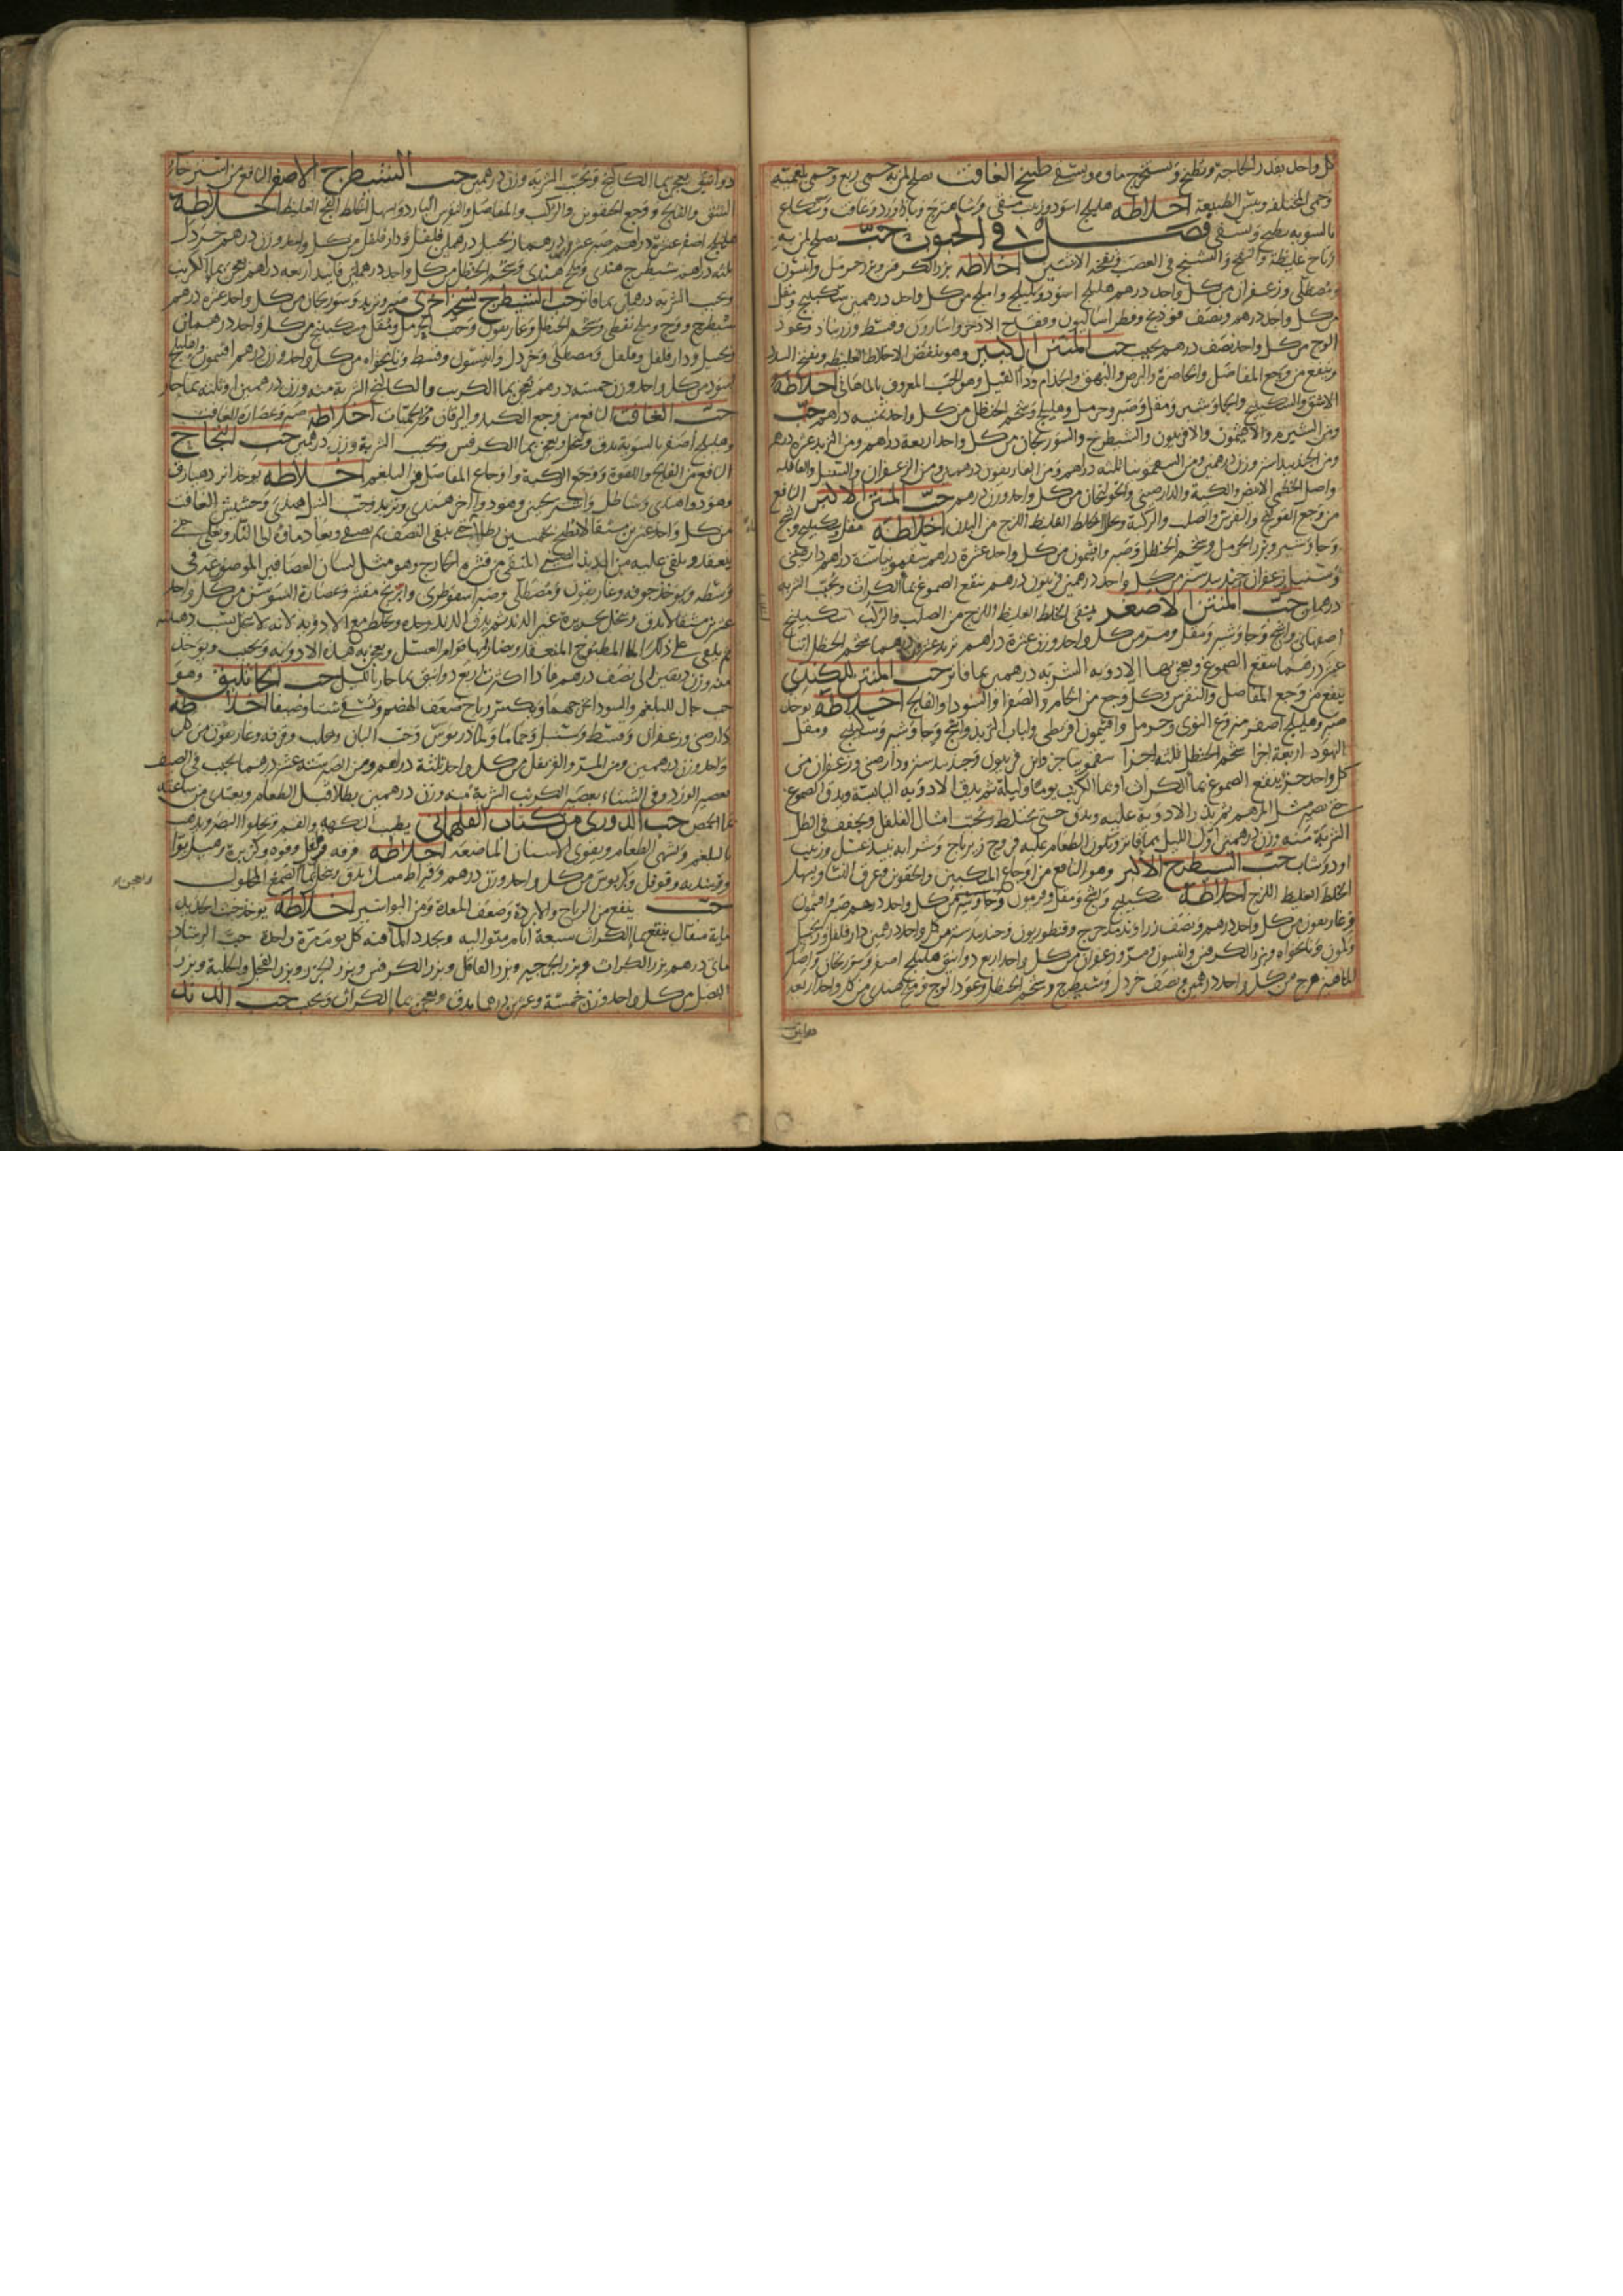 كل واحد بقدر الحاجة ويطبخ ويستخرج ماوه ويسقى طبيخ الغافت يصلح لمن به حمى ربع وحمى بلغميه
وحمى المختلفه ويبس الطبيعة اخلاطه هليلج اسود وزبيب منقى وشاهترج وباذاورد وغافت وشكاع
بالسويه يطبخ ويسقى فصل في الحبوب حب يصلح لمن به
رياح غليظة والتفخ والتشنج في العصب ونفخة الانثيين اخلاطه بزر الكرفس وبزر حرمل وانيسون
ومصطكى وزعفران من كل واحد درهم هليلج اسود وبليلج واملج من كل واحد درهمين سكبينج ومقل
من كل واحد درهم ونصف فودنج وفطر اساليون وفقاح الاذخر واسارون وقسط وزرنباد وعود
الوج من كل واحد نصف درهم يحبب حب المنتن الكبير وهو ينفض الاخلاط الغليظه ويفتح السدد
وينفع من وجع المفاصل والخاصرة والبرص والبهق والجذام وداء الفيل وهو الحب المعروف بالماهاني اخلاطه
الاشق والسكبينج والجاوشير ومقل وصبر وحرمل وهليلج وشحم الحنظل من كل واحد ثمنيه دراهم
ومن الشبرم والافتيمون والافربيون والشيطرج والسورنجان من كل واحد اربعة دراهم ومن التربد عشرة دراهم
ومن الجندبيدستر وزن درهمين ومن السقمونيا ثلثه دراهم ومن الغاريقون درهمين ومن الزعفران والسنبل والقاقله
واصل الخطمي الابيض والكبة والدارصيني والخولنجان من كل واحد وزن درهم حب المنتن الاكبر النافع
من وجع القولنج والنقرس والصلب والركبة وعلل الخلط الغليظ اللزج من البدن اخلاطه مقل وسكبينج واشج
وجاوشير وبزر الحرمل وشحم الحنظل وصبر وافتيمون من كل واحد عشرة دراهم سقمونيا ستة دراهم دارصيني
وسنبل وزعفران جندبيدستر من كل واحد درهمين فربيون درهم ينقع الصموغ بماء الكراث ويحبب الشربه
درهمان حب المنتن الاصغر ينقى الخلط الغليظ اللزج من الصلب والركب سكبينج
اصفهاني واشج وجاوشير ومقل ومر من كل واحد وزن عشرة دراهم تربد عشرون درهما شحم الحنظل اثنا
عشر درهما ينقع الصموغ ويعجن بها الادويه الشربه درهمين بما فاتر حب المنتن للكندي
ينفع من وجع المفاصل والنقرس وكل وجع من الخام والصفرا والسودا والفالج اخلاطه يوخذ
صبر وهليلج اصفر منزوع النوى وحرمل وافتيمون اقريطي ولباب التربد واشج وجاوشير وسكبينج ومقل
اليهود اربعة اجزا شحم الحنظل ثلثه اجزا سقمونيا جزواين فربيون وجندبيدستر ودارصيني وزعفران من
كل واحد جزو ينقع الصموغ بماء الكراث او بماء الكرنب يوما وليلة ثم يدق الادويه اليابسة ويدق الصموغ
حتى يصير مثل المرهم ثم يذر الادوية عليه ويدق حتى يختلط ويحبب امثال الفلفل ويجفف في الظل
الشربة منه وزن درهمين اول الليل بما فاتر ويكون الطعام عليه فروج زيرباج وشرابه نبيذ عسل وزبيب
او دوشاب حب الشيطرج الاكبر وهو النافع من اوجاع المنكبين والحقوين وعرق النسا ويسهل
الخلط الغليظ اللزج اخلاطه سكبينج واشج ومقل وفربيون وجاوشير من كل واحد درهم صبر وافتيمون
وغاريقون من كل واحد درهم ونصف زراوند مدحرج وقنطوريون وجندبيدستر من كل واحد درهمين دارفلفل وزنجبيل
وكمون ونانخواه وبزر الكرفس وانيسون ومر وزعفران من كل واحد اربع دوانيق هليلج اصفر وسورنجان واصل
الماهيزهرج من كل واحد درهمين ونصف خردل وشيطرج وشحم الحنظل وعود الوج وملح هندي من كل واحد اربعه
دوانيق
دوانيق يعجن بماء الكاكنج ويحبب الشربه وزن درهمين حب الشيطرج الاصغر النافع من استرخاء
الشق والفالج ووجع الحقوين والركب والمفاصل والنقرس البارد ويسهل الخلط الفج الغليظ اخلاطه
هليلج اصفر عشرة دراهم صبر عشرون درهما زنجبيل درهمان فلفل ودارفلفل من كل واحد وزن درهم خردل
ثلثه دراهم شيطرج هندي وملح هندي وشحم الحنظل من كل واحد درهمان فانيذ اربعه دراهم يعجن بماء الكرنب
ويحبب الشربه درهمان بما فاتر حب الشيطرج نسخه اخرى صبر وتربد وسورنجان من كل واحد عشرة دراهم
شيطرج ووج وملح نفطي وشحم الحنظل وغاريقون وحب الحرمل ومقل وسكبينج من كل واحد درهمان
زنجبيل ودارفلفل وفلفل ومصطكى وخردل وانيسون وقسط ونانخواه من كل واحد وزن درهم افتيمون واهليلج
اسود من كل واحد وزن خمسه دراهم يعجن بماء الكرنب والكاكنج الشربه منه وزن درهمين او ثلثه بما حار
حب الغافت النافع من وجع الكبد واليرقان والحميات اخلاطه صبر وعصارة الغافت
وهليلج اصفر بالسوية يدق وينخل ويعجن بماء الكرفس ويحبب الشربة وزن درهمين حب النجاح
النافع من الفالج واللقوة ووجع الركبة واوجاع المفاصل من البلغم اخلاطه يوخذ
وهو دوا هندي وشاطل
من كل واحد عشرين مثقالا يطبخ بخمسين رطلا حتى يبقى النصف ثم يصفى ويعاد ماوه الى النار ويغلى حتى
ينعقد ويلقى عليه من الدند الصيني المنقى من قشره الخارج وهو مثل لسان العصافير الموضوعة في
وسطه ويوخذ جوفه وغاريقون ومصطكى وصبر اسقوطرى وابرنج مقشر وعصارة السوس من كل واحد
عشرين مثقالا يدق وينخل بحريرة غير الدند ثم يدق الدند وحده ويخلط مع الادوية لانه لا ينخل بسبب دهنه
ثم يلقى على ذلك الماء المطبوخ المنعقد وصار لها قوام العسل ويعجن به هذه الادويه ويحبب ويوخذ
منه وزن دانقين الى نصف درهم فاذا اكثرت اربع دوانيق بما حار حب الجاثليق وهو
حب جال للبلغم والسودا جميعا ويكسر رياح ضعف الهضم ويسقى شتا وصيفا اخلاطه
دارصيني وزعفران وقسط وسنبل وحماما وكمادريوس وحب البان وقرفه وغاريقون من كل
واحد وزن درهمين ومن المر والقرنفل من كل واحد ثلثة دراهم ومن الصبر ستة عشر درهما يحبب في الصيف
بعصير الورد وفي الشتاء بعصير الكرنب الشربة منه وزن درهمين يطلا قبل الطعام ويغتذى من ساعته
بما الحمص حب الدورى من كتاب القلهمانى يطيب النكهه والفم ويجلوا البصر ويذهب
بالبلغم ويشهى الطعام ويقوى الاسنان الماضغه اخلاطه قرفه وقرنفل وفوه
من كل واحد وزن درهم وقيراط مسك يدق وينخل بماء الصمغ المحلول
ويعجن به
حب ينفع من الرياح والابردة وضعف المعدة ومن البواسير اخلاطه يوخذ خبث الحديد
ماية مثقال ينقع بماء الكراث سبعة ايام متواليه ويجدد الماء فيه كل يوم مرة واحدة حب الرشاد
ماتى درهم بزر الكراث وبزر الجرجير وبزر الفاقل وبزر الكرفس وبزر الجزر وبزر الفجل والحلبة وبزر
البصل من كل واحد وزن خمسة وعشرين درهما يدق ويعجن بماء الكراث ويحبب حب الدند